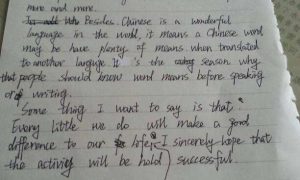 more and more.
Besides, Chinese is a wonderful
language in the world, it means a Chinese word
may be have plenty of means when translated
to another languge. It is the season why
that people should know word means before speaking
or writing.
Some thing I want to say is that
Every little we do will make a good
difference to our life. I sincerely hope that
the activies will be hold successful.